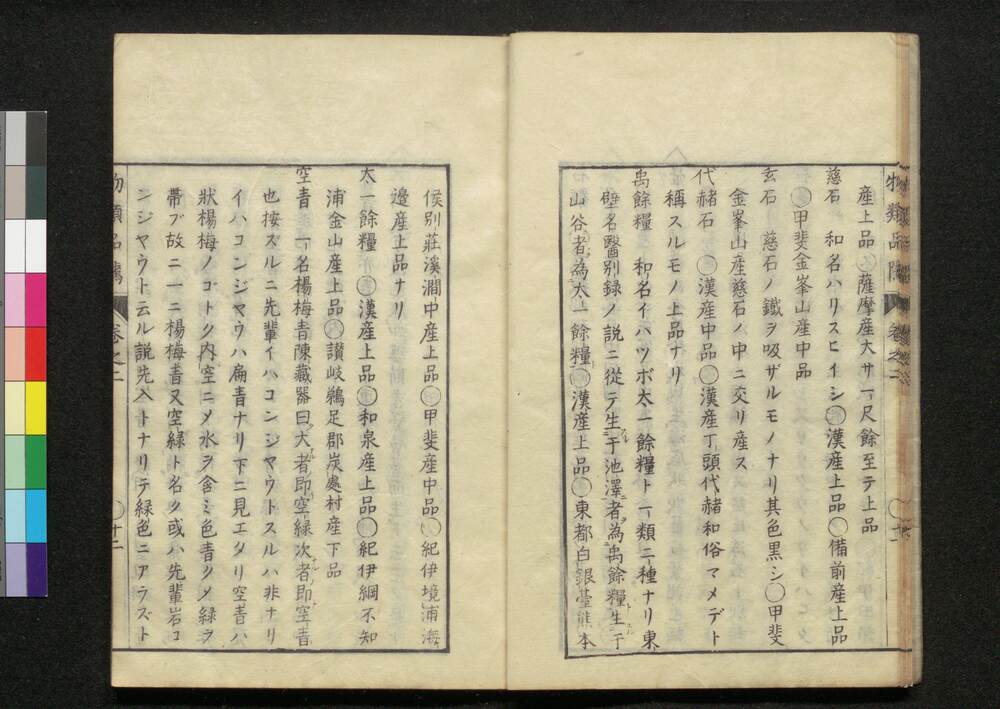 物類品隲 巻之二
産上品〇薩摩産大サ一尺餘至テ上品
慈石 和名ハリスヒイシ〇漢産上品〇備前産上品
〇甲斐金峯山産中品
玄石 慈石ノ鐵ヲ吸ザルモノナリ其色黒シ〇甲斐
金峯山産慈石ノ中ニ交リ産ス
代赭石 〇漢産中品〇漢産丁頭代赭和俗マメデト
稱スルモノ上品ナリ
禹餘糧 和名イハツボ太一餘糧ト一類二種ナリ東
壁名醫別録ノ説ニ從テ生于池澤者為禹餘糧生于
山谷者為太一餘糧〇漢産上品〇東都白銀臺熊本
候別莊溪澗中産上品〇甲斐産中品〇紀伊境浦海
邊産上品ナリ
太一餘糧 〇漢産上品〇和泉産上品〇紀伊綱不知
浦金山産上品〇讃岐鵜足郡炭處村産下品
空青 一名楊梅青陳藏器曰大者即空緑次者即空青
也按ズルニ先輩イハコンジヤウトスルハ非ナリ
イハコンジヤウハ扁青ナリ下ニ見エタリ空青ハ
狀楊梅ノゴトク内空ニメ水ヲ含ミ色青クメ緑ヲ
帶ブ故ニ一ニ楊梅青又空緑ト名ク或ハ先輩岩コ
ンジヤウト云ル説先入トナリテ緑色ニアラズト
物類品隲 巻之二 〇十二